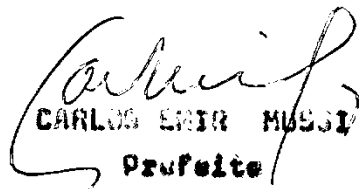 CARLOS EMIR MUSSI
Prefeito